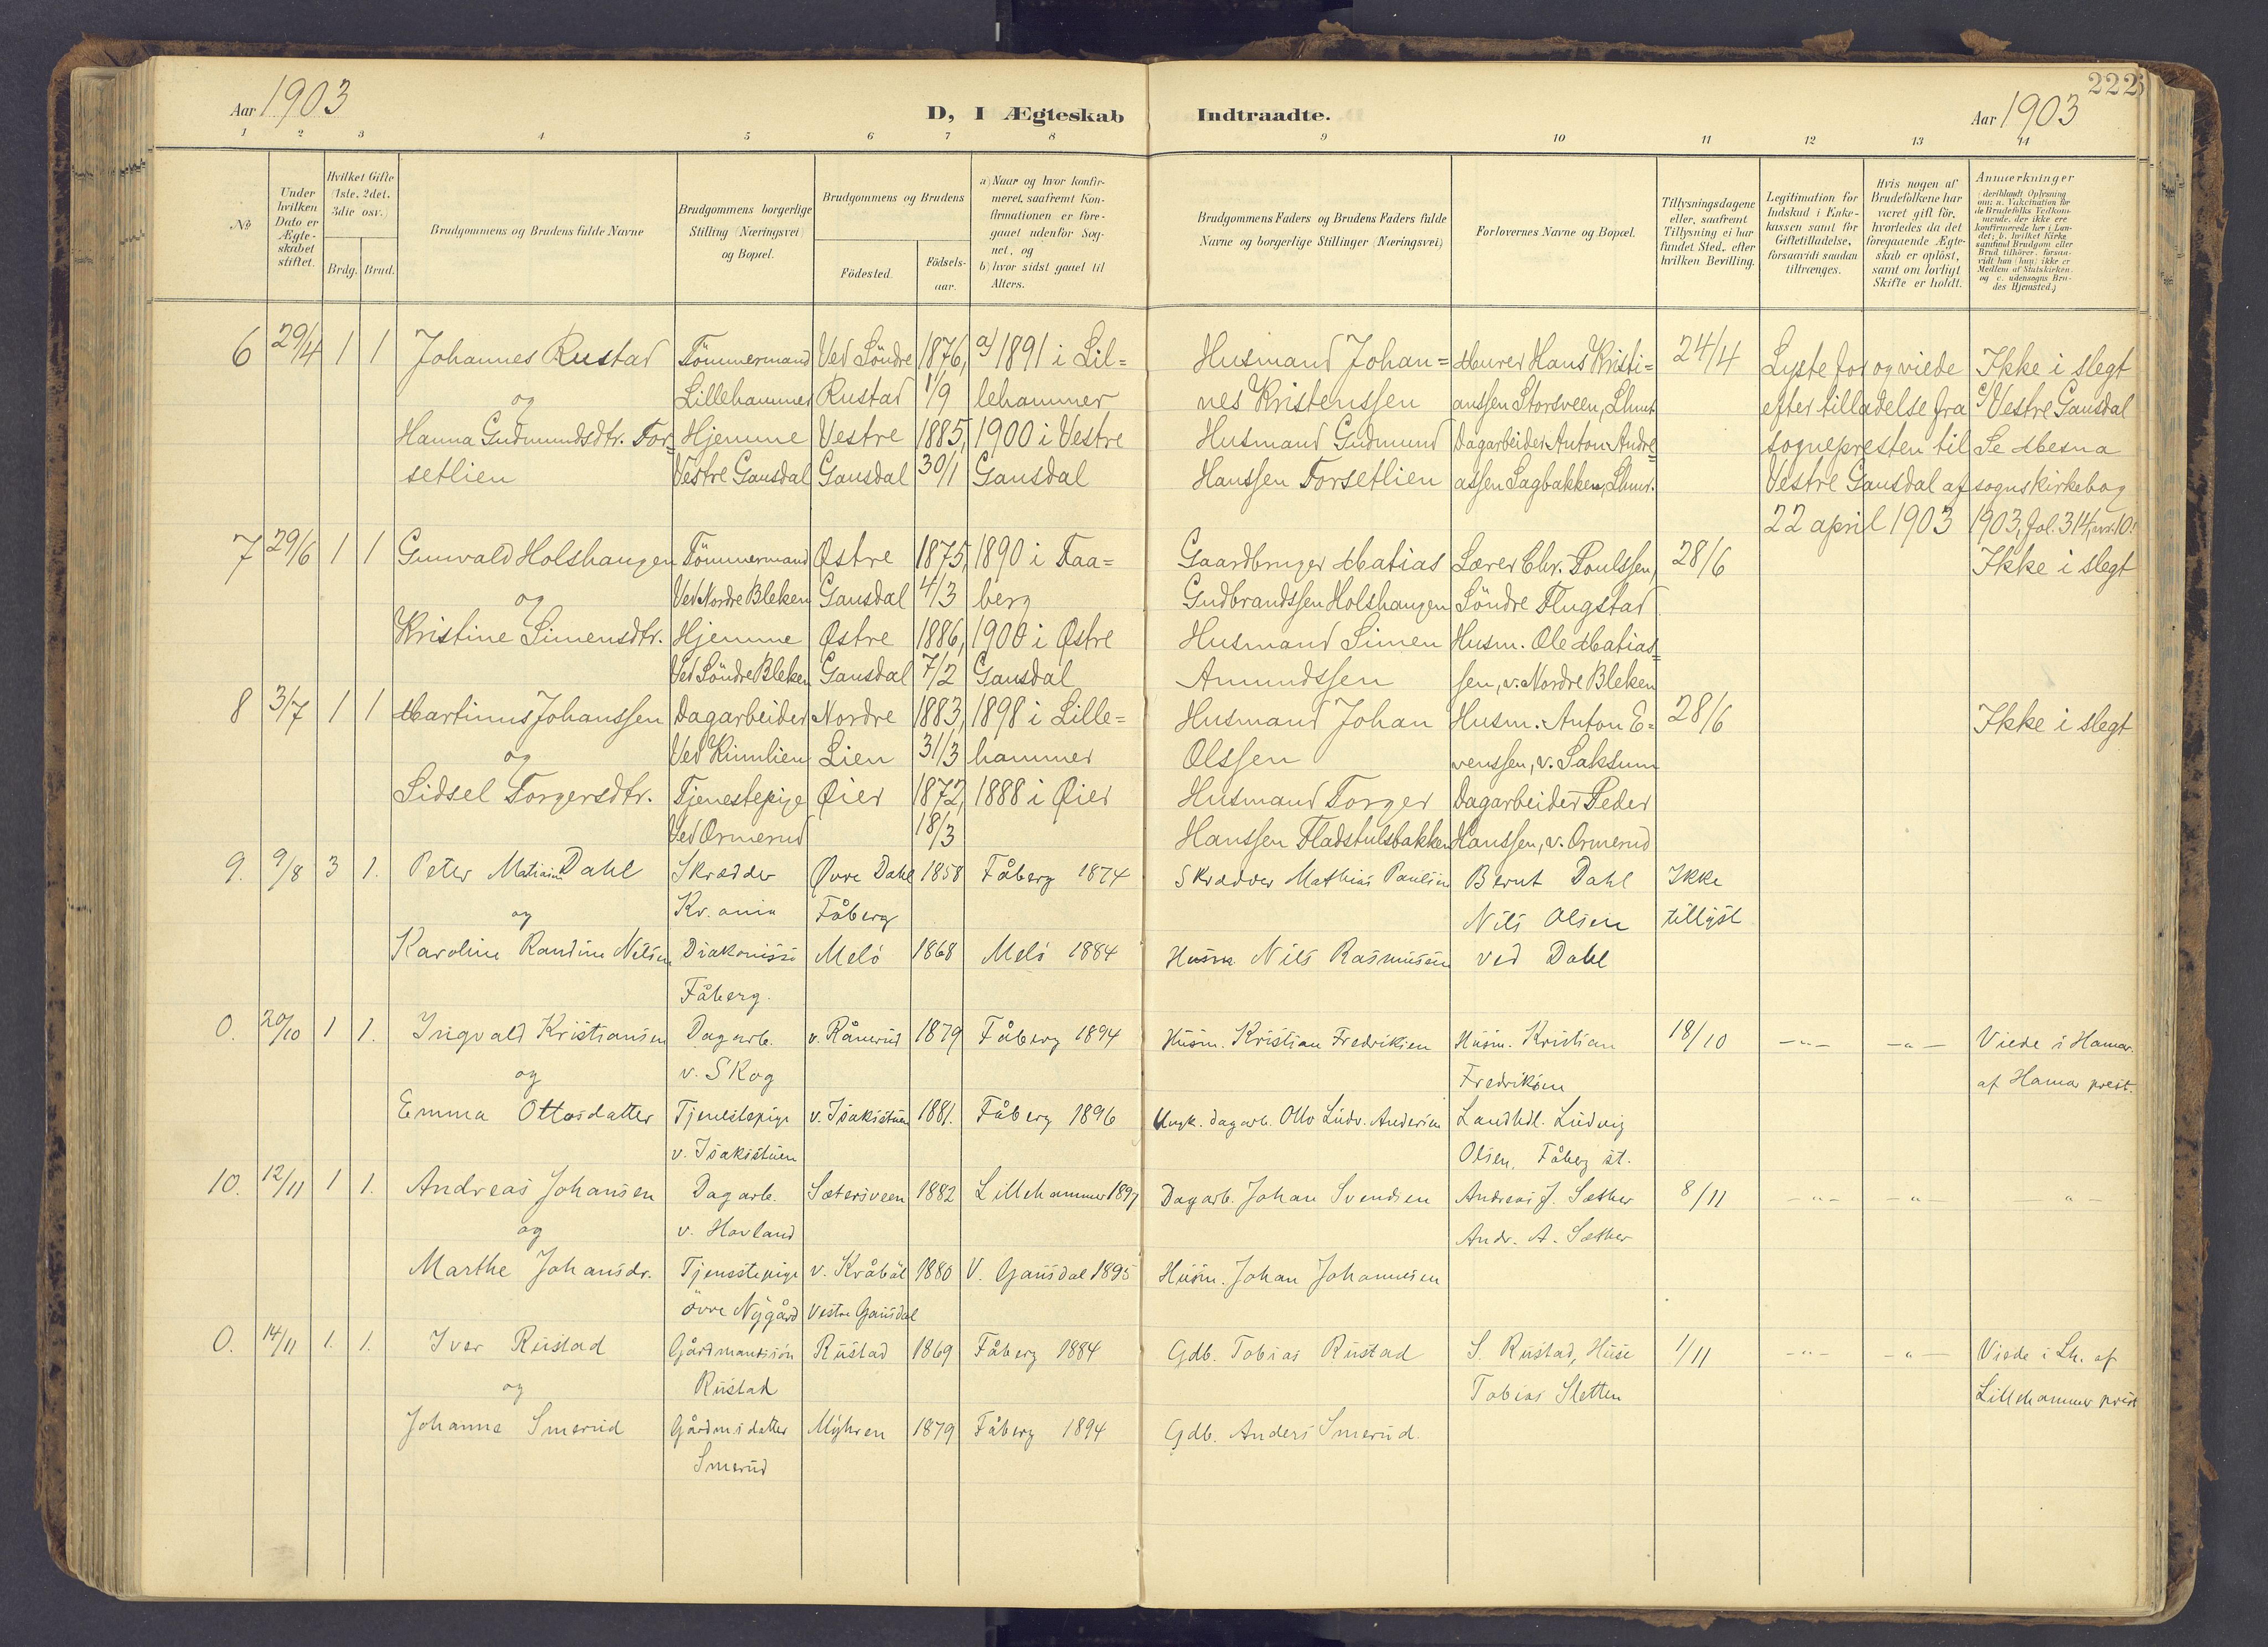 222
Aar 1903
D, I Ægteskab
Indtraadte.
Aar 1903
1 2 3 4 5 6 7 8 9 10 11 12 13 14
No
Under hvilken Dato er Ægte-skabet stiftet.
Hvilket Gifte (1ste, 2det, 3die osv.)
Brdg. Brud.
Brudgommens og Brudens fulde Navne
Brudgommens borgerlige Stilling (Næringsvei) og Bopæl.
Brudgommens og Brudens
Födested.
Födsels-aar.
a) Naar og hvor konfir-meret, saafremt Kon-firmationen er fore-gaaet udenfor Sog-net, og
b) hvor sidst gaaet til Alters.
Brudgommens Faders og Brudens Faders fulde Navne og borgerlige Stillinger (Næringsvei)
Forlovernes Navne og Bopæl.
Tillysningsdagene eller, saafremt Tillysning ei har fundet Sted, efter hvilken Bevilling.
Legitimation for Indskud i Enke-kassen samt for Giftetilladelse, forsaavidt saadan tiltrænges.
Hvis nogen af Brudefolkene har været gift för, hvorledes da det foregaaende Ægte-skab er oplöst, samt om lovligt Skifte er holdt.
Anmærkninger
(deriblandt Oplysning om: a. Vakcination for de Brudefolks Vedkom-mende, der ikke ere konfirmerede her i Lan-det; b. hvilket Kirke-samfund Brudgom eller Brud tilhörer, forsaa-vidt han (hun) ikke er Medlem af Statskirken, og c. udensogns Bru-des Hjemsted.)
6 29/4 1 1 Johannes Rustad Tömmermand Ved Söndre 1876, a) 1891 i Lil= Husmand Johan= Murer Hans Kristi= 24/4 Lyste for og viede Ikke i slegt
og Lillehammer Rustad 1/9 lehammer nes Kristenssen anssen Storsveen, Lhmr. efter tilladelse fra c) Vestre Gausdal
Hanna Gudmundsdtr. For= Hjemme Vestre 1885, 1900 i Vestre Husmand Gudmund Dagarbeider Anton Andre= sognepresten til Se Mesna
setlien Vestre Gausdal Gausdal 30/1 Gausdal Hanssen Forsetlien assen Sagbakken, Lhmr. Vestre Gausdal af sogns kirkebog
22 april 1903 1903, fol. 314, nr. 10.
7 29/6 1 1 Gunvald Holshaugen Tömmermand Østre 1875, 1890 i Faa= Gaardbruger Matias Lærer Chr. Poulssen, 28/6 Ikke i slegt
og Ved Nordre Bleken Gausdal 4/3 berg Gudbrandssen Holshaugen Söndre Flugstad
Kristine Simensdtr. Hjemme Østre 1886, 1900 i Østre Husmand Simen Husm. Ole Matias=
Ved Söndre Bleken Gausdal 7/2 Gausdal Amundssen sen, v. Nordre Bleken
8 3/7 1 1 Martinus Johanssen Dagarbeider Nordre 1883, 1898 i Lille= Husmand Johan Husm. Anton E= 28/6 Ikke i slegt
og Ved Kinnlien Lien 31/3 hammer Olssen venssen, v. Saksum
Sidsel Torgersdtr. Tjenestepige Øier 1872, 1888 i Øier Husmand Torger Dagarbeider Peder
Ved Ormerud 18/3 Hanssen Fladstulsbakken Hanssen, v. Ormerud
9. 9/8 3 1. Peter Matiasen Dahl Skrædder Øvre Dahl 1858 Fåberg 1874 Skrædder Mathias Paulsen Bernt Dahl Ikke
og Kr.ania Fåberg Nils Olsen tillyst
Karoline Randine Nilsen Diakonisse Melö 1868 Melö 1884 Husm. Nils Rasmussen ved Dahl
Fåberg.
0. 20/10 1 1. Ingvald Kristiansen Dagarb. v. Rånerud 1879 Fåberg 1894 Husm. Kristian Fredriksen Husm. Kristian 18/10 —"— —"— Viede i Hamar
og v. Skog Fredriksen af Hamar prest.
Emma Ottosdatter Tjenestepige v. Isakistuen 1881. Fåberg 1896 Ungk. dagarb. Otto Ludv. Andersen Landhdl. Ludvig
v. Isakistuen Olsen, Fåberg st.
10. 12/11 1 1. Andreas Johansen Dagarb. Sætersveen 1882 Lillehammer 1897 Dagarb. Johan Svendsen Andreas J. Sæther 8/11 —"— —"— —"—
og v. Hovland Andr. A. Sæther
Marthe Johansdr. Tjenestepige v. Kråböl 1880 V. Gausdal 1895 Husm. Johan Johannesen
övre Nygård Vestre Gausdal
0. 14/11 1. 1. Iver Rustad Gårdmandssön Rustad 1869 Fåberg 1884 Gdb. Tobias Rustad S. Rustad, Huse 1/11 —"— —"— Viede i Lh. af
og Rustad Tobias Sletten Lillehammer prest
Johanne Smerud Gårdmsdatter Myhren 1879 Fåberg 1894 Gdb. Anders Smerud.
Smerud